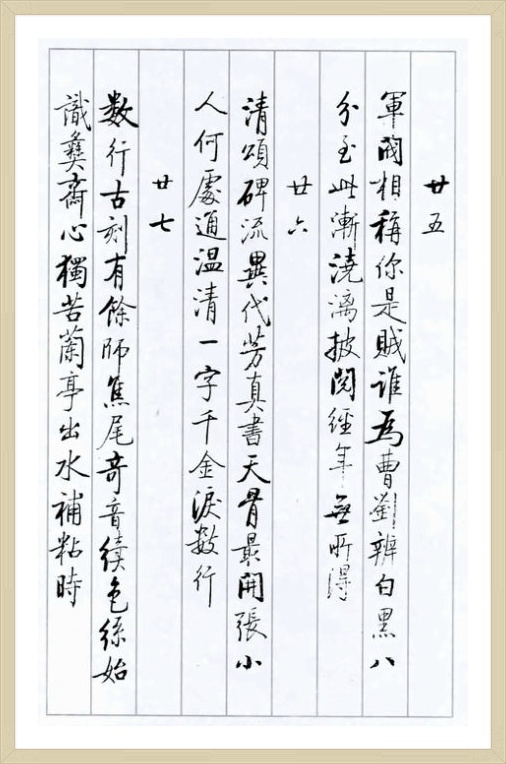 廿五
軍閥相稱你是賊誰為曹劉辨白黑八
分至此漸澆漓披閱經年無所得
廿六
清頌碑流異代芳真書天骨最開張小
人何處通溫清一字千金淚數行
廿七
數行古刻有餘師焦尾奇音續色絲始
識彝齋心獨苦蘭亭出水補粘時